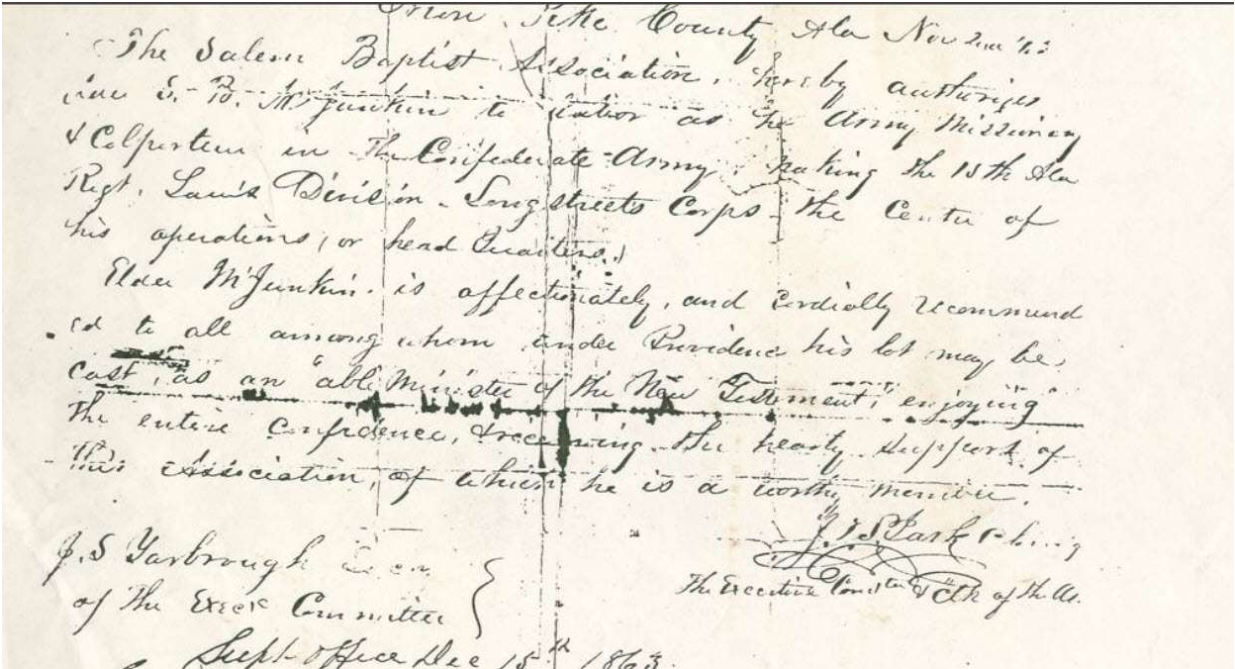 Pike County Ala Nov 2nd
The Salem Baptist Association, hereby authorizes
S. B. McJunkin to labor as the Army Missionary
& Colporteur in the Confederate Army, making the 15th Ala
Regt. Law's Division - Longstreets Corps - the Center of
his operations, or head Quarters.
Elder McJunkin. is affectionately, and cordially recommend
ed to all among whom under Providence his lot may be
cast, as an "able Minister of the New Testament," enjoying
the entire confidence, & receiving the hearty support of
this Association, of which he is a worthy member.
J. S Park
J. S Yarbrough
of the Exec Committee
The Executive Comtee & Clk of the As.
Supt office Dec 15th 1863.